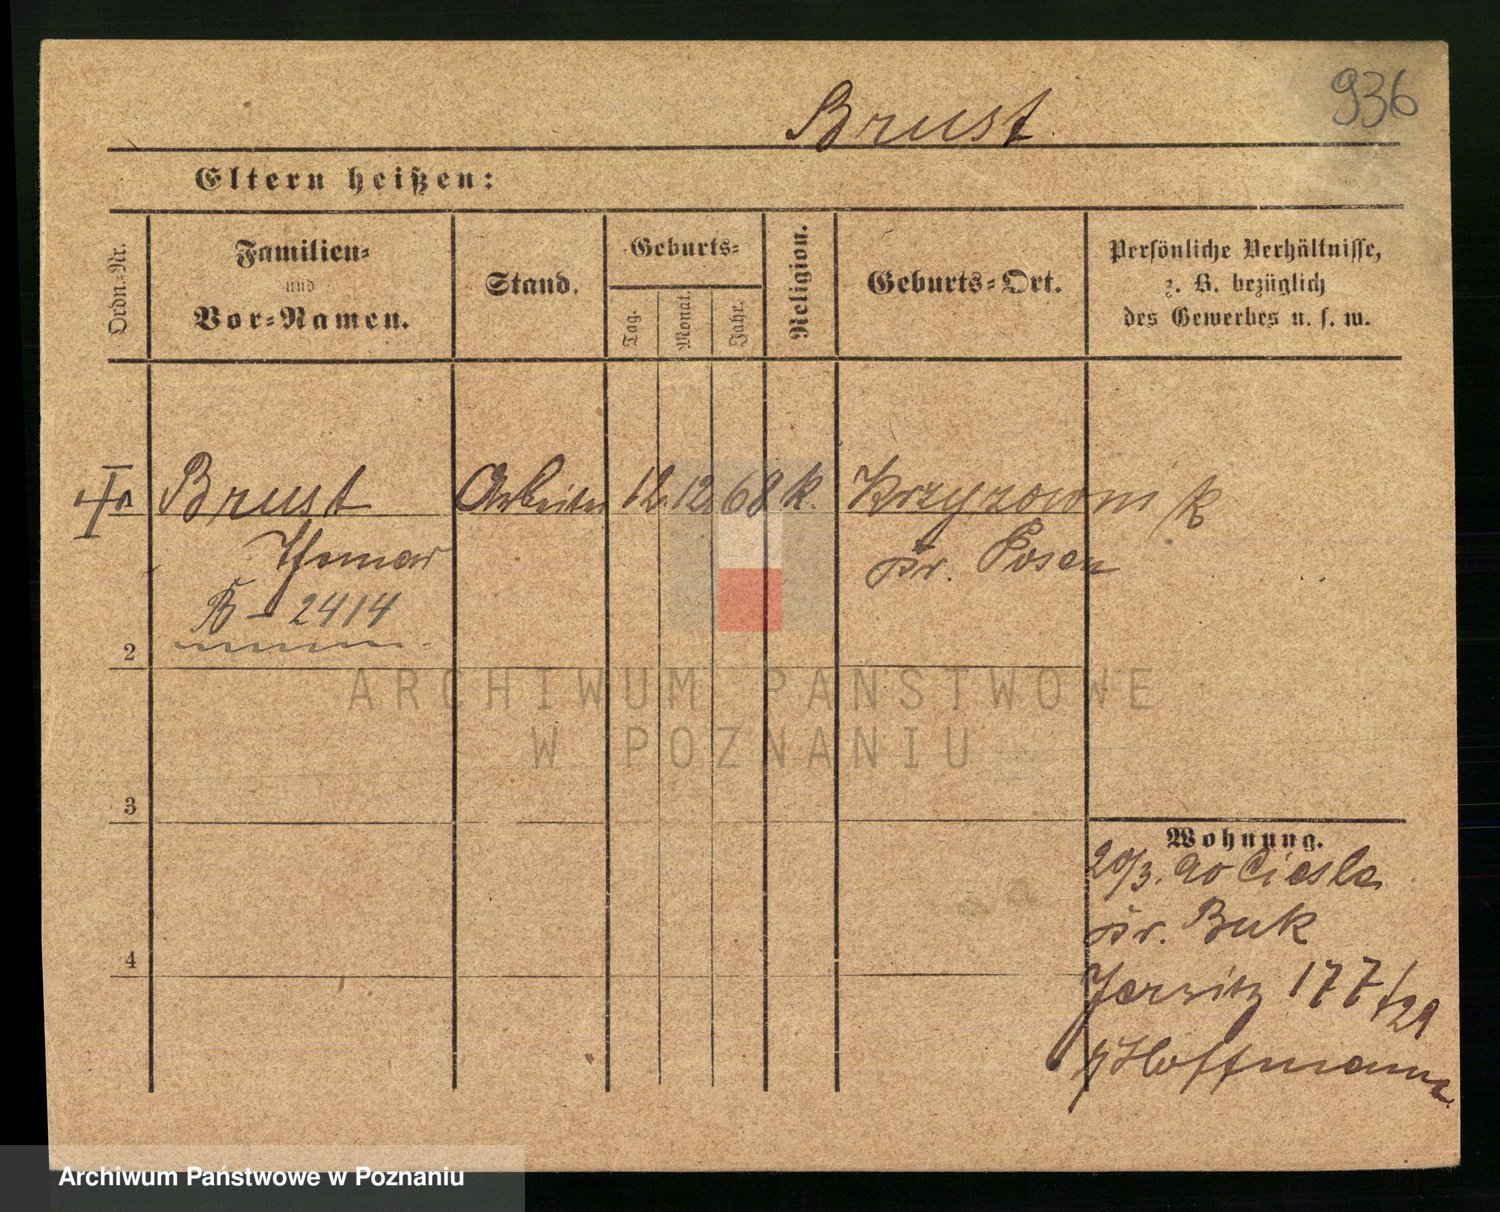 936
Brust
Eltern heißen:
Ordn.-Nr.
Familien-
und
Vor-Namen.
Stand.
Geburts-
Tag.
Monat.
Jahr.
Religion.
Geburts-Ort.
Persönliche Verhältnisse,
z. B. bezüglich
des Gewerbes u. s. w.
Brust Arbeiter 12. 12. 68 k.
Thomas Kr. Posen
B - 2414
2
3
4
Wohnung.
20/3. 90 Ciesle
Kr. Buk
Jersitz 177/29
Hoffmann
ARCHIWUM PAŃSTWOWE
W POZNANIU
Archiwum Państwowe w Poznaniu